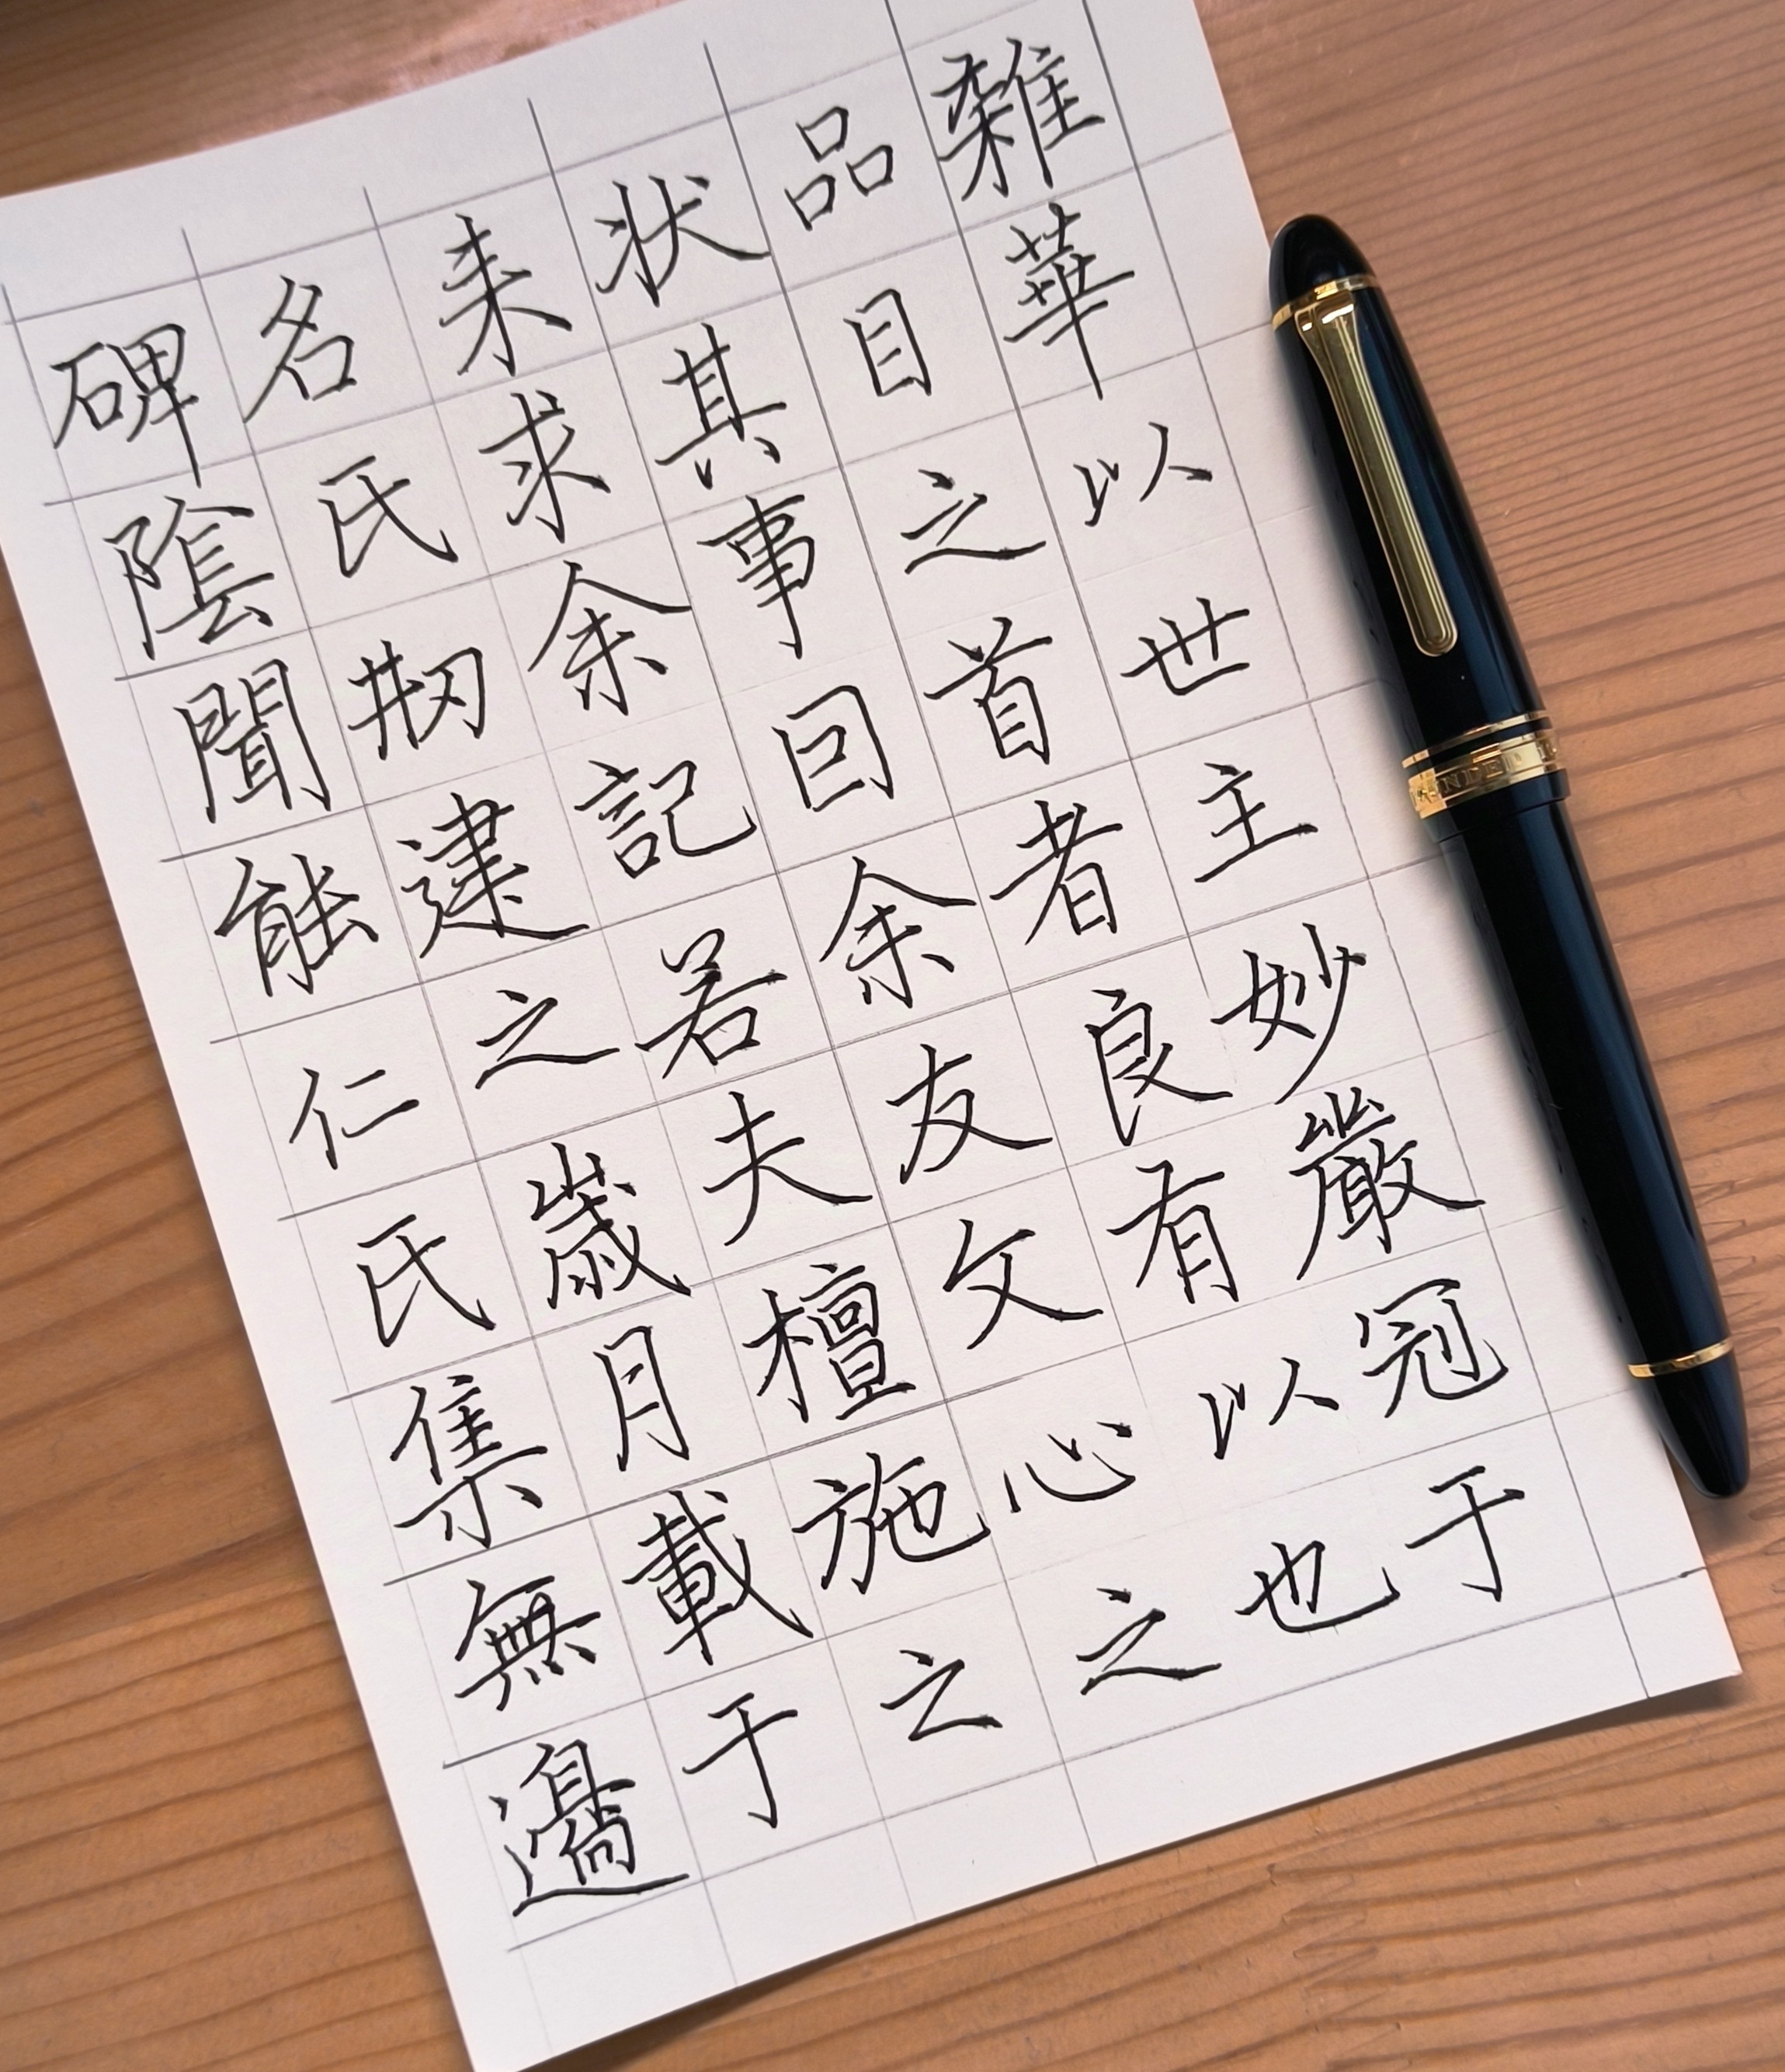 雜華以世主妙嚴冠于
品目之首者良有以也
状其事囙余友文心之
来求余記若夫檀施之
名氏剏建之歲月載于
碑隂聞能仁氏集無邊